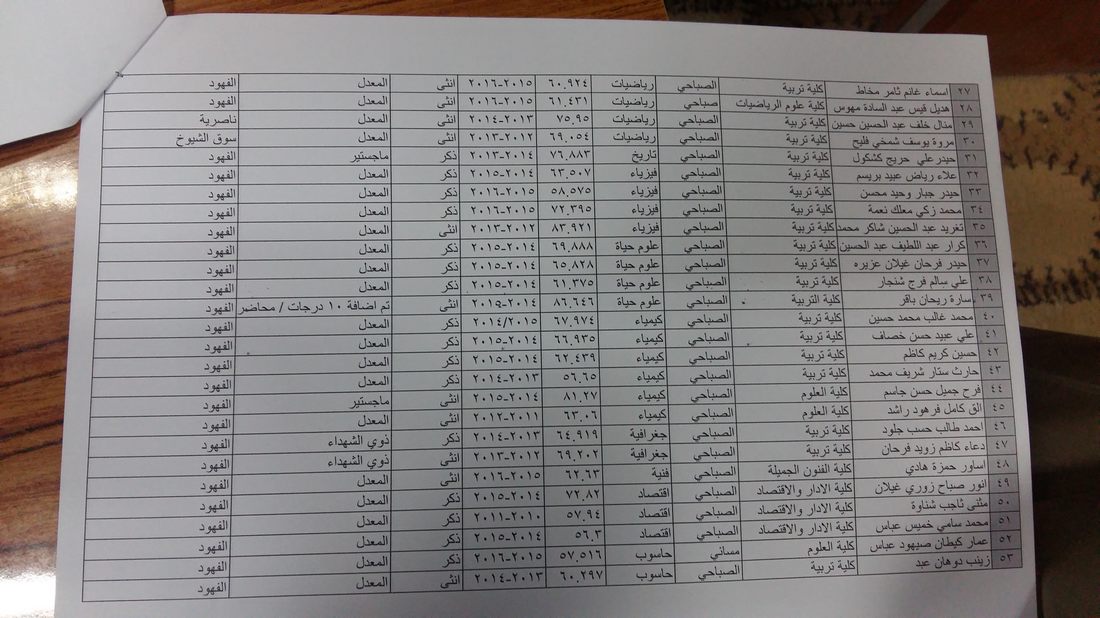 ٢٧ اسماء غانم ثامر مخاط كلية تربية الصباحي رياضيات ٦٠.٩٢٤ ٢٠١٥-٢٠١٦ انثى المعدل الفهود
٢٨ هديل قيس عبد السادة مهوس كلية علوم الرياضيات صباحي رياضيات ٦١.٤٣١ ٢٠١٥-٢٠١٦ انثى المعدل الفهود
٢٩ منال خلف عبد الحسين حسين كلية تربية الصباحي رياضيات ٧٥.٩٥ ٢٠١٣-٢٠١٤ انثى المعدل ناصرية
٣٠ مروة يوسف شمخي فليح كلية تربية الصباحي رياضيات ٦٩.٠٥٤ ٢٠١٢-٢٠١٣ انثى المعدل سوق الشيوخ
٣١ حيدر علي حريج كشكول كلية تربية الصباحي تاريخ ٧٦.٨٨٣ ٢٠١٤-٢٠١٣ ذكر ماجستير الفهود
٣٢ علاء رياض عبيد بريسم كلية تربية الصباحي فيزياء ٦٣.٥٠٧ ٢٠١٤-٢٠١٥ ذكر المعدل الفهود
٣٣ حيدر جبار وحيد محسن كلية تربية الصباحي فيزياء ٥٨.٥٧٥ ٢٠١٥-٢٠١٦ ذكر المعدل الفهود
٣٤ محمد زكي معلك نعمة كلية تربية الصباحي فيزياء ٧٢.٣٩٥ ٢٠١٥-٢٠١٦ ذكر المعدل الفهود
٣٥ تغريد عبد الحسين شاكر محمد كلية تربية الصباحي فيزياء ٨٣.٩٢١ ٢٠١٢-٢٠١٣ انثى المعدل الفهود
٣٦ كرار عبد اللطيف عبد الحسين كلية تربية الصباحي علوم حياة ٦٩.٨٨٨ ٢٠١٤-٢٠١٥ ذكر المعدل الفهود
٣٧ حيدر فرحان غيلان عزيره كلية تربية الصباحي علوم حياة ٦٥.٨٢٨ ٢٠١٤-٢٠١٥ ذكر المعدل الفهود
٣٨ علي سالم فرج شنجار كلية تربية الصباحي علوم حياة ٦١.٣٧٥ ٢٠١٤-٢٠١٥ ذكر المعدل الفهود
٣٩ سارة ريحان باقر كلية التربية الصباحي علوم حياة ٨٦.٦٤٦ ٢٠١٤-٢٠١٩ انثى تم اضافة ١٠ درجات / محاضر الفهود
٤٠ محمد غالب محمد حسين كلية تربية الصباحي كيمياء ٦٧.٩٧٤ ٢٠١٤/٢٠١٥ ذكر المعدل الفهود
٤١ علي عبيد حسن خصاف كلية تربية الصباحي كيمياء ٦٦.٩٣٥ ٢٠١٤-٢٠١٥ ذكر المعدل الفهود
٤٢ حسين كريم كاظم كلية تربية الصباحي كيمياء ٦٢.٤٣٩ ٢٠١٤-٢٠١٥ ذكر المعدل الفهود
٤٣ حارث ستار شريف محمد كلية تربية الصباحي كيمياء ٥٦.٦٥ ٢٠١٣-٢٠١٤ ذكر المعدل الفهود
٤٤ فرح جميل حسن جاسم كلية العلوم الصباحي كيمياء ٨١.٢٧ ٢٠١٤-٢٠١٥ انثى ماجستير الفهود
٤٥ الق كامل فرهود راشد كلية العلوم الصباحي كيمياء ٦٣.٠٦ ٢٠١١-٢٠١٢ انثى المعدل الفهود
٤٦ احمد طالب حسب جلود كلية تربية الصباحي جغرافية ٦٤.٩١٩ ٢٠١٣-٢٠١٤ ذكر ذوي الشهداء الفهود
٤٧ دعاء كاظم زويد فرحان كلية تربية الصباحي جغرافية ٦٩.٢٠٢ ٢٠١٢-٢٠١٣ انثى ذوي الشهداء الفهود
٤٨ اساور حمزة هادي كلية الفنون الجميلة الصباحي فنية ٦٢.٦٣ ٢٠١٥-٢٠١٦ انثى المعدل الفهود
٤٩ انور صباح زوري غيلان كلية الادار والاقتصاد الصباحي اقتصاد ٧٢.٨٢ ٢٠١٤-٢٠١٥ ذكر المعدل الفهود
٥٠ مثنى ثاجب شناوة كلية الادار والاقتصاد الصباحي اقتصاد ٥٧.٩٤ ٢٠١٠-٢٠١١ ذكر المعدل الفهود
٥١ محمد سامي خميس عباس كلية الادار والاقتصاد الصباحي اقتصاد ٥٦.٣ ٢٠١٤-٢٠١٥ ذكر المعدل الفهود
٥٢ عمار كيطان صبهود عباس كلية العلوم مسائي حاسوب ٥٧.٥١٦ ٢٠١٥-٢٠١٦ ذكر المعدل الفهود
٥٣ زينب دوهان عبد كلية تربية الصباحي حاسوب ٦٠.٢٩٧ ٢٠١٣-٢٠١٤ انثى المعدل الفهود